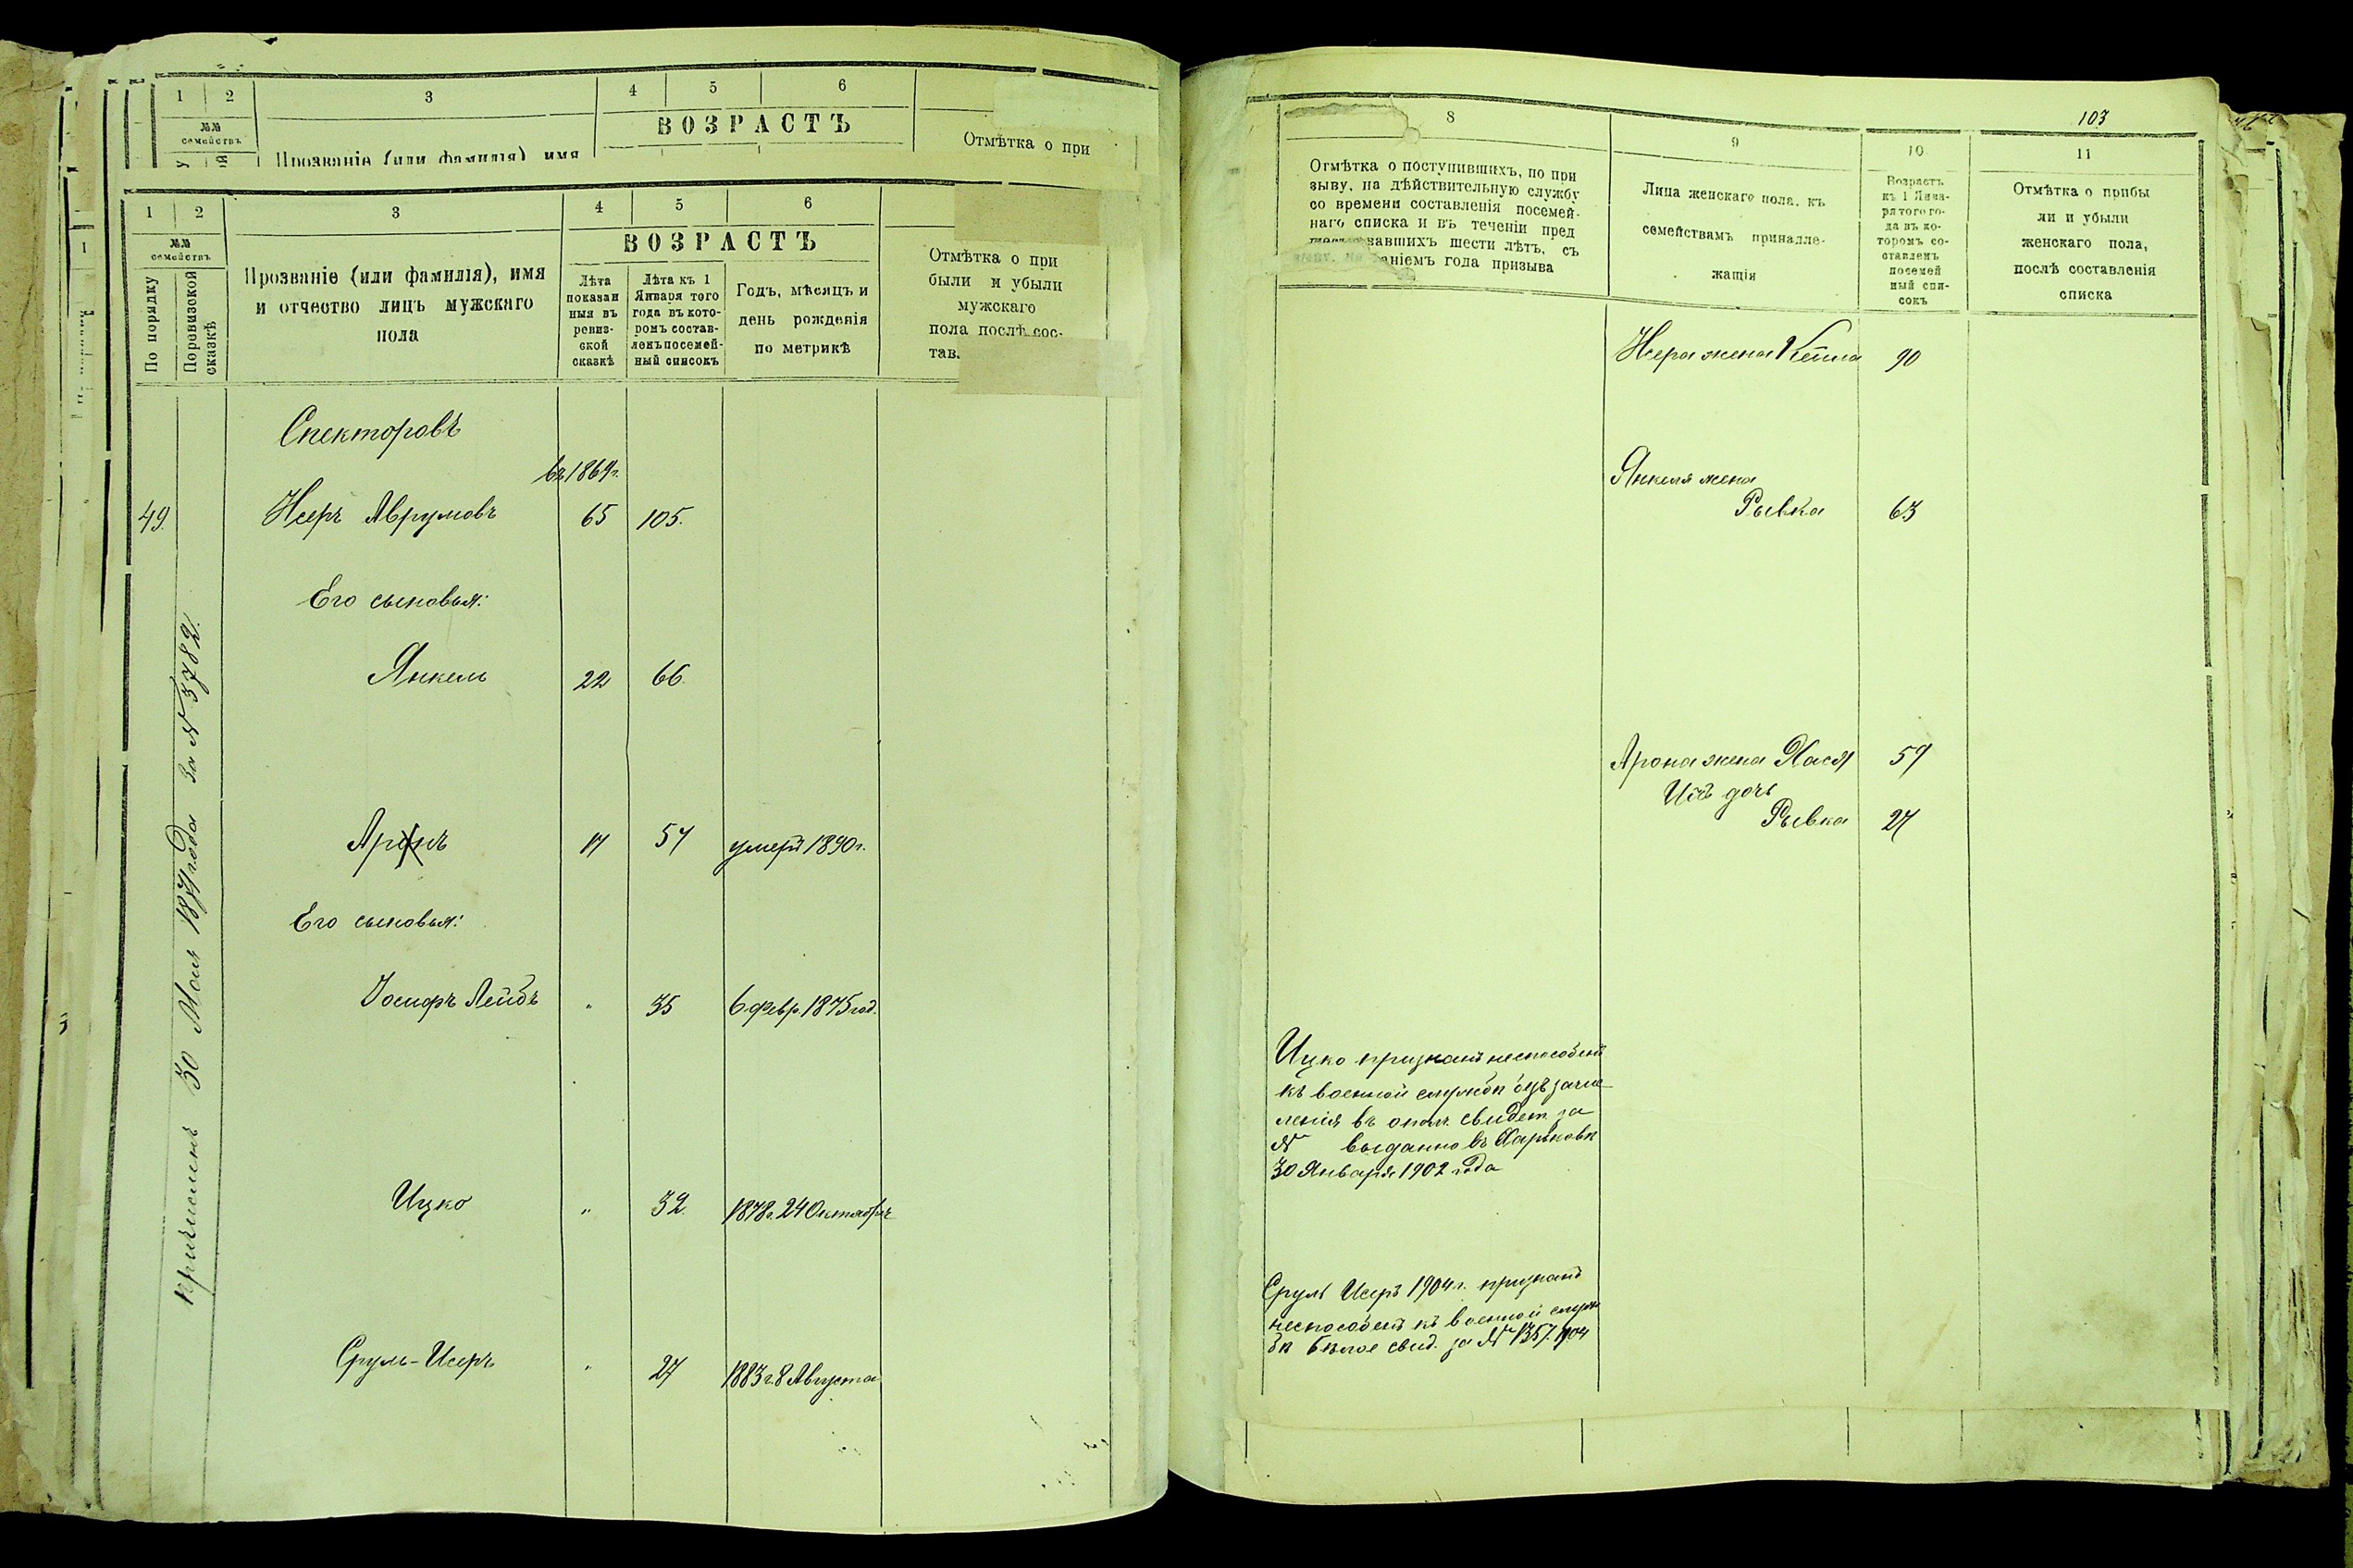 1 2 3 4 5 6
№№ семействъ
ВОЗРАСТЪ
Прозваніе (или фамилія) имя
Отмѣтка о при
1 2 3 4 5 6
№№ семействъ
По порядку
По ревизской сказкѣ
Прозваніе (или фамилія), имя
и отчество лицъ мужскаго
пола
ВОЗРАСТЪ
Лѣта
показан
ныя въ
ревиз-
ской
сказкѣ
Лѣта къ 1
Января того
года въ кото-
ромъ состав-
ленъ посемей-
ный списокъ
Годъ, мѣсяцъ и
день рожденія
по метрикѣ
Отмѣтка о при
были и убыли
мужскаго
пола послѣ сос-
тав.
Спекторовъ
въ 1864г.
49. Исеръ Аврумовъ 65 105.
Его сыновья:
Янкель 22 66.
Аронъ 17 57 умеръ 1890г.
Его сыновья:
Іосифъ Лейбъ " 35 6 февр. 1875 год.
Ицко " 32. 1878г. 24 Октября
Сруль-Исеръ " 27 1883 г. 8 Августа
причисленъ 30 Мая 1874 года за № 3782.
103
8 9 10 11
Отмѣтка о поступившихъ, по при
зыву, на дѣйствительную службу
со времени составленія посемей-
наго списка и въ теченіи пред
вавшихъ шести лѣтъ, съ
аніемъ года призыва
Лица женскаго пола, къ
семействамъ принадле-
жащія
Возрастъ
къ 1 Янва-
ря того го-
да въ ко-
торомъ со-
ставленъ
посемей
ный спи-
сокъ
Отмѣтка о прибы
ли и убыли
женскаго пола,
послѣ составленія
списка
Исера жена Кейла 90
Янкеля жена
Рывка 63
Арона жена Хася 57
Ихъ дочь
Рывка 27
Ицко признанъ неспособенъ
къ военной службѣ безъ зачис-
ленія въ опол. свидет. за
№ выданно въ Харьковѣ
30 Января 1902 года
Сруль Исеръ 1904г. признанъ
неспособенъ къ военной служ
бѣ бѣлое свид. за № 1357 1904